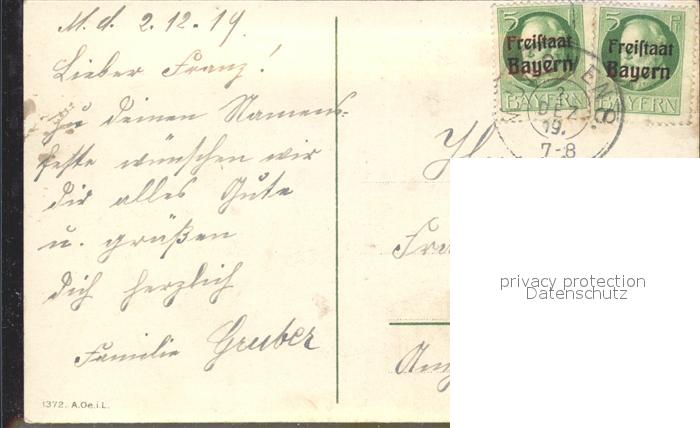 M. d. 2.12.19.
Lieber Franz!
Zu deinen Namens-
feste wünschen wir
dir alles Gute
u. grüßen
dich herzlich
Familie Gruber
1372. A.Oe.i.L.
5 5 Pf
Freistaat Freistaat
Bayern Bayern
BAYERN BAYERN
2
DEZ.
19.
7-8
privacy protection
Datenschutz